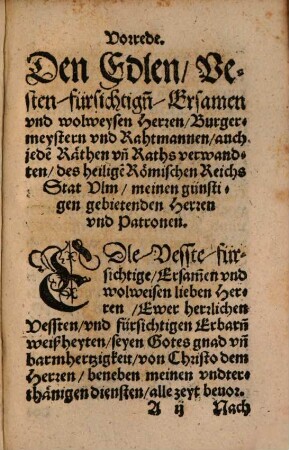 Vorrede.
Den Edlen/ Ve-
sten/ fürsichtigñ/ Ersamen
vnd wolweysen Herren/ Burger-
meystern vnd Rahtmannen/ auch
jedē Räthen vñ Raths verwand-
ten/ des heiligē Römischen Reichs
Stat Vlm/ meinen günsti-
gen gebietenden Herren
vnd Patronen.
EDle Vesste/ für-
sichtige/ Ersam̃en vnd
wolweisen lieben Her-
ren/ Ewer herrlichen
Vessten/ vnd fürsichtigen Erbarñ
weißheyten/ seyen Gotes gnad vñ
barmhertzigkeit/ von Christo dem
Herren/ beneben meinen vndter-
thänigen diensten/ alle zeyt beuor.
A ij Nach